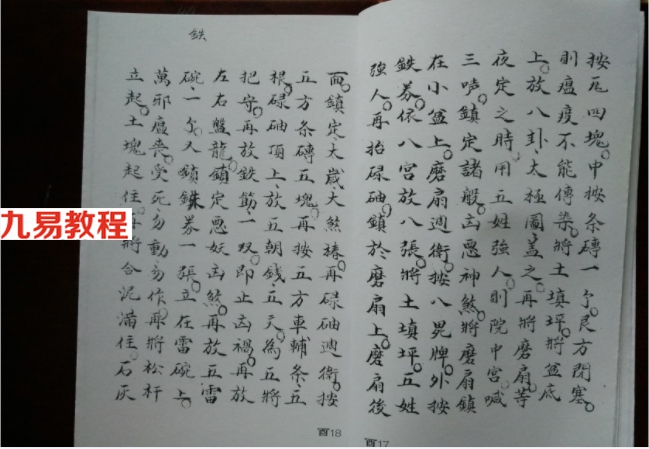 按瓦四塊。中按条磚一个。艮方閉塞。
則瘟疫不能傳染。將土填坪。將盆底
上。放八卦太極圖。盖之。再將磨扇。等
夜定之時。用五姓強人。則院中宮。喊
三声。鎮定諸般。凶惡神煞。將磨扇鎮
在小盆上。磨扇週衛。按八晃牌。外按
鉄券。依八宮放八張。將土填坪。五姓
強人。再抬碌碡。鎮於磨扇上。磨扇後
面。鎮定大歲。大煞椿。再碌碡週衛。按
五方条磚五塊。再按五方車輔条。五
根。碌碡頂上。放五朝錢。五天。為五將
把守。再放鉄筯。一双。即止凶禍。再放
左右盤龍。鎮定惡妖凶煞。再放五雷
碗。一个。又鎖鉄券一張。立在雷碗上。
萬邪廬喪。受死。勿動。勿作。再將松杆
立起。土塊起住。再將合泥滿住。石灰
鉄
酉17
酉18
九易教程